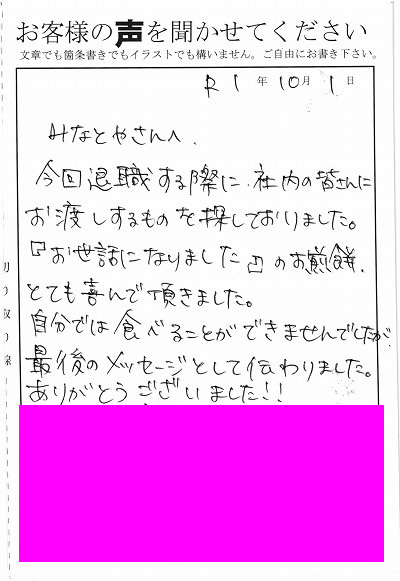 お客様の声を聞かせてください
文章でも箇条書きでもイラストでも構いません。ご自由にお書き下さい。
R1年10月1日
みなとやさんへ、
今回退職する際に、社内の皆さんに
お渡しするものを探しておりました。
『お世話になりました』のお煎餅、
とても喜んで頂きました。
自分では食べることができませんでしたが、
最後のメッセージとして伝わりました。
ありがとうございました!!
切り取り線